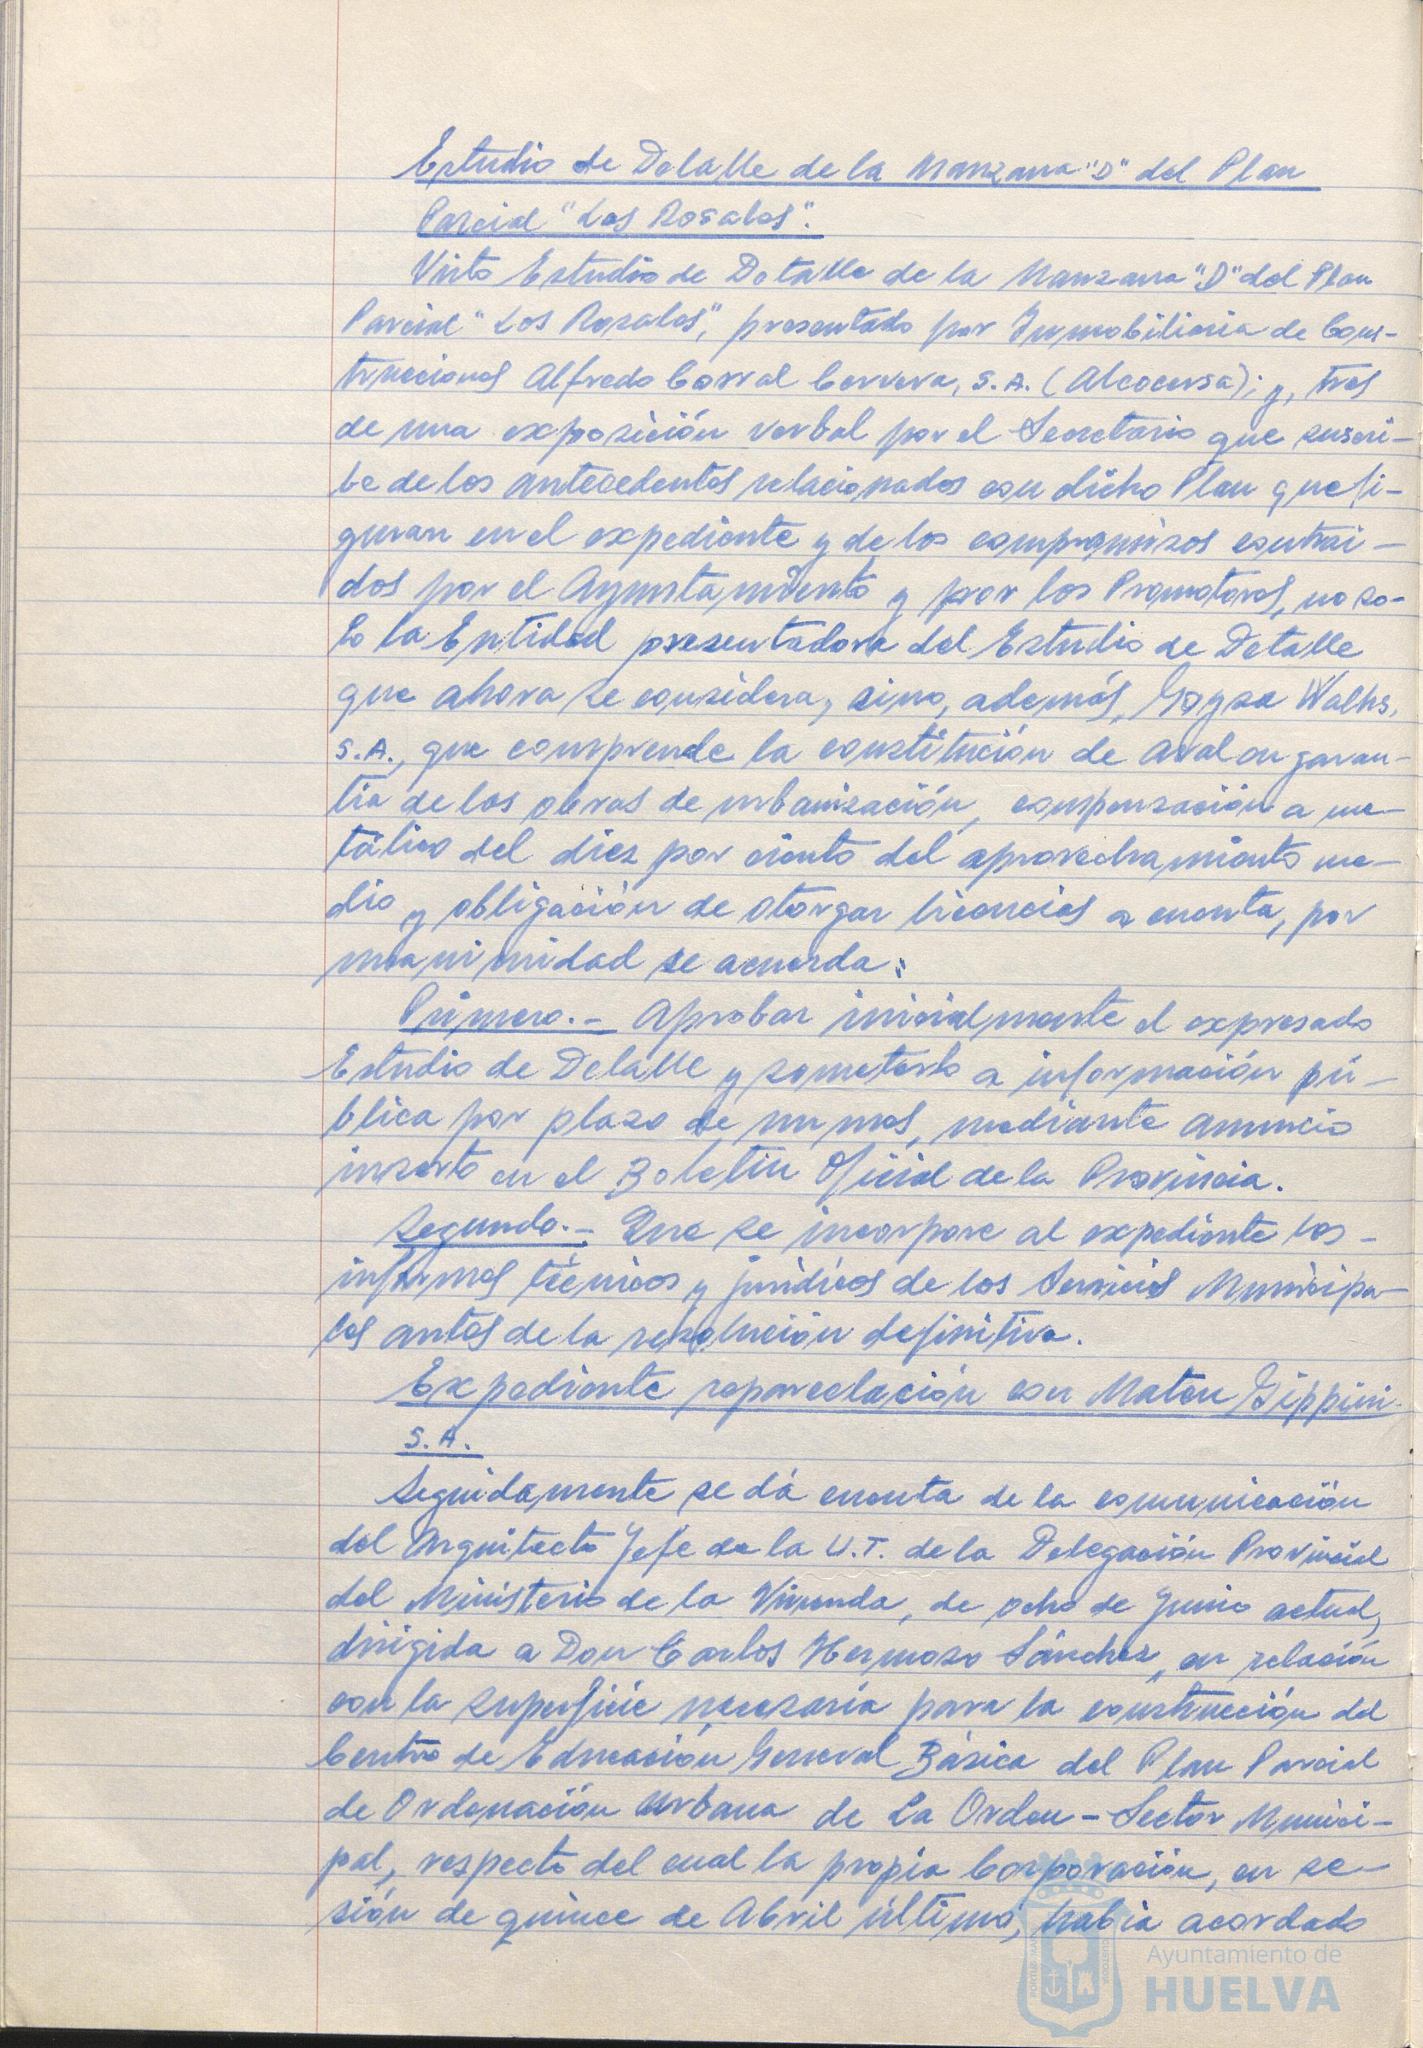 Estudio de Detalle de la Manzana "D" del Plan
Parcial "Los Rosales".
Visto Estudio de Detalle de la Manzana "D" del Plan
Parcial "Los Rosales", presentado por Inmobiliaria de Cons-
trucciones Alfredo Corral Cervera, S.A. (Alcocersa); y, tras
de una exposición verbal por el Secretario que suscri-
be de los antecedentes relacionados con dicho Plan que fi-
guran en el expediente y de los compromisos contraí-
dos por el Ayuntamiento y por los Promotores, no so-
lo la Entidad presentadora del Estudio de Detalle
que ahora se considera, sino, además, Goysa Walhs,
S.A., que comprende la constitución de aval en garan-
tía de las obras de urbanización, compensación a me-
tálico del diez por ciento del aprovechamiento me-
dio y obligación de otorgar licencias a cuenta, por
unanimidad se acuerda:
Primero.- Aprobar inicialmente el expresado
Estudio de Detalle y someterlo a información pú-
blica por plazo de un mes, mediante anuncio
inserto en el Boletín Oficial de la Provincia.
Segundo.- Que se incorpore al expediente los-
informes técnicos y jurídicos de los Servicios Municipa-
les antes de la resolución definitiva.
Expediente reparcelación con Mateu Gippini-
S.A.
Seguidamente se dá cuenta de la comunicación
del Arquitecto Jefe de la U.T. de la Delegación Provincial
del Ministerio de la Vivienda, de ocho de Junio actual,
dirigida a Don Carlos Hermoso Sánchez, en relación
con la superficie necesaria para la construcción del
Centro de Educación General Básica del Plan Parcial
de Ordenación Urbana de La Orden-Sector Munici-
pal, respecto del cual la propia Corporación, en se-
sión de quince de Abril último, había acordado
Ayuntamiento de
HUELVA